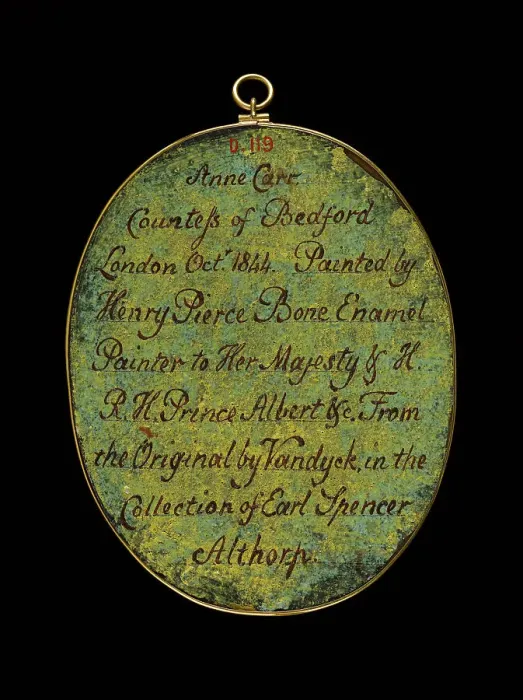 D.119
Anne Carr.
Counteſs of Bedford
London Octr. 1844. Painted by
Henry Pierce Bone Enamel
Painter to Her Majesty & H.
R. H. Prince Albert &c. From
the Original by Vandyck, in the
Collection of Earl Spencer
Althorp.